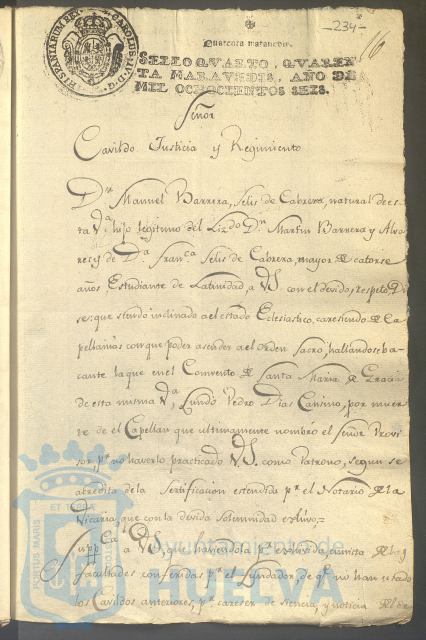 -234-
16
Quarenta maravedis.
SELLO QVARTO, QVAREN
TA MARAVEDIS, AÑO DE
MIL OCHOCIENTOS SEIS.
HISPANIARUM REX CAROLUS IV D G
Señor
Cavildo Justicia y Regimiento
Dn. Manuel Barrera, Selis de Cabrera, natural de es-
ta Va. hijo legitimo del Lizdo. Dn. Martin Barrera y Alva
res, y de Da. Franca. Selis de Cabrera, mayor de catorse
años Estudiante de Latinidad, a VS. con el devido respeto di
se: que siendo inclinado al estado Eclesiastico, caresiendo de Ca
pellanias con que poder asender al orden Sacro, hallandose ba
cante la que en el Convento de Santa Maria de Gracia
de esta misma Va, fundó Pedro Dias Canino, por muer
te de el Capellan que ultimamente nombró el Señor Provi
sor, pr. no haverlo practicado VS. como Patrono, segun se
acredita de la Sertificasion estendida pr. el Notario de la
Vicaria, que con la devida solemnidad exhivo,=
Suppca. a VS, que haviendola pr. exhivida, en vista de las
facultades conferidas pr. el fundador, de qe. no han usado
los Cavildos anteriores, pr. careser de siencia, y noticia del de
PORTUS MARIS ET TERRAE CUSTODIA
Ayuntamiento de
HUELVA